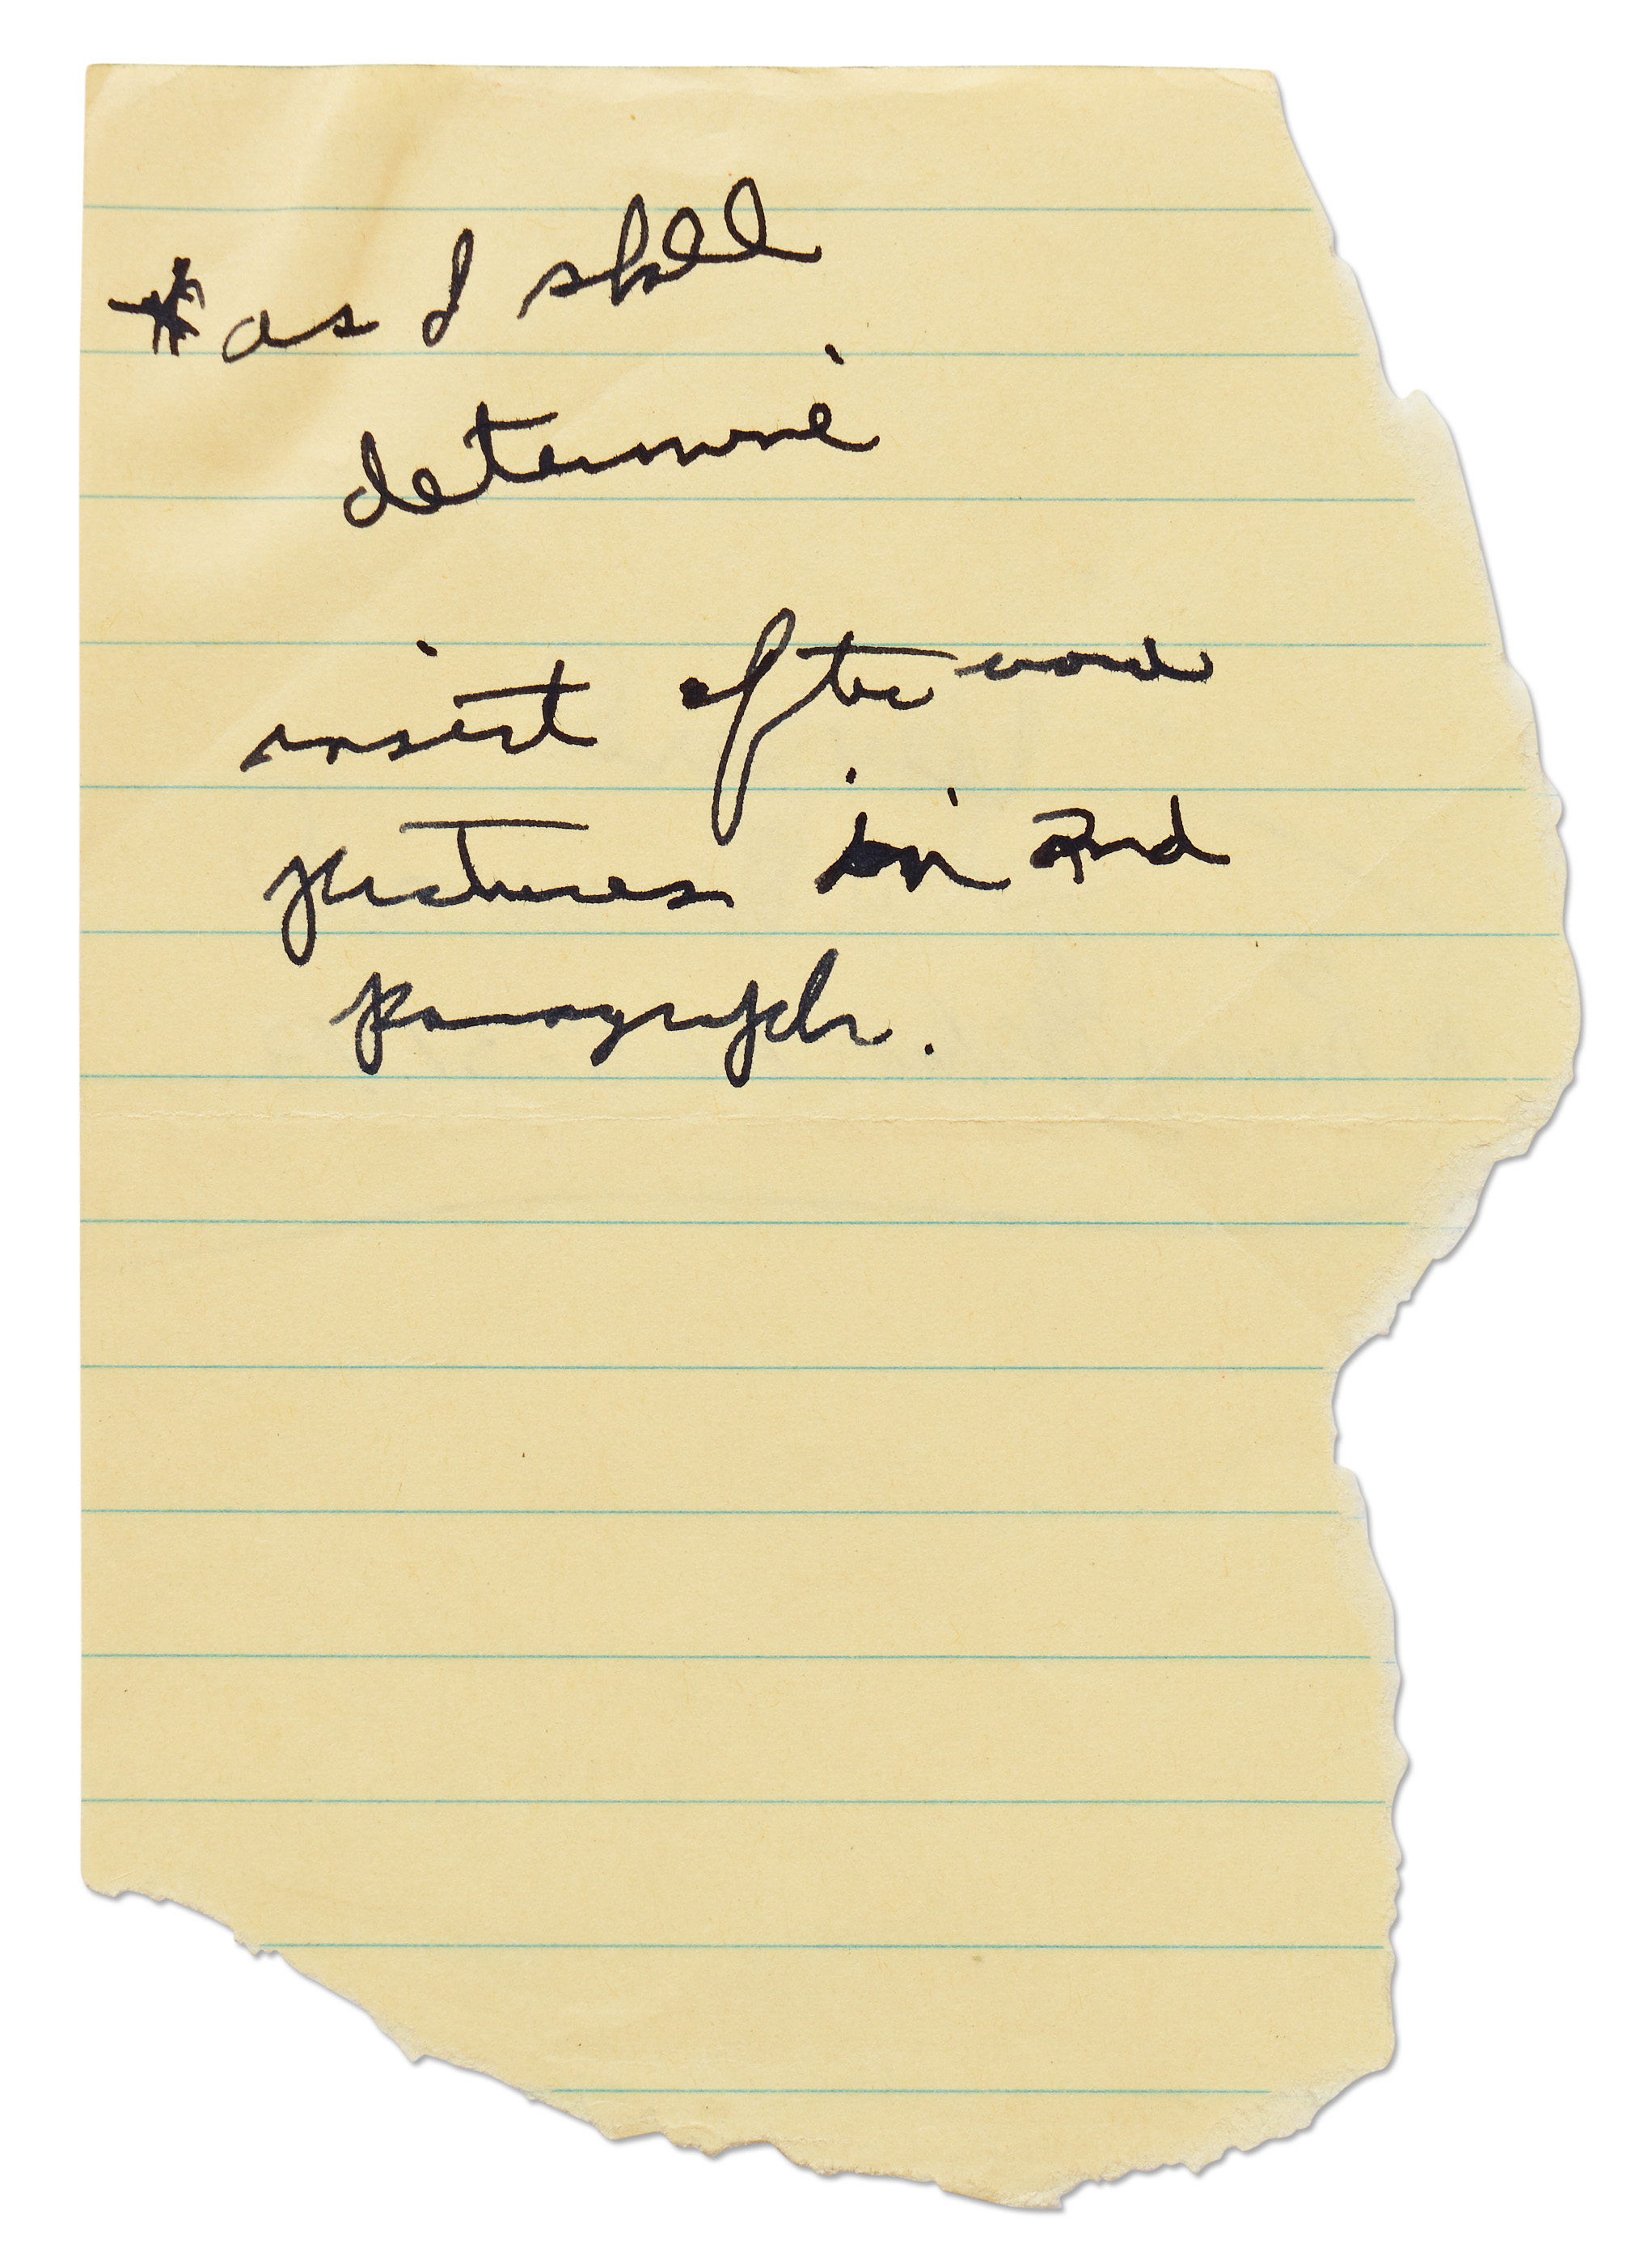 *as I shall
determine
insert after word
pictures in 2nd
paragraph.